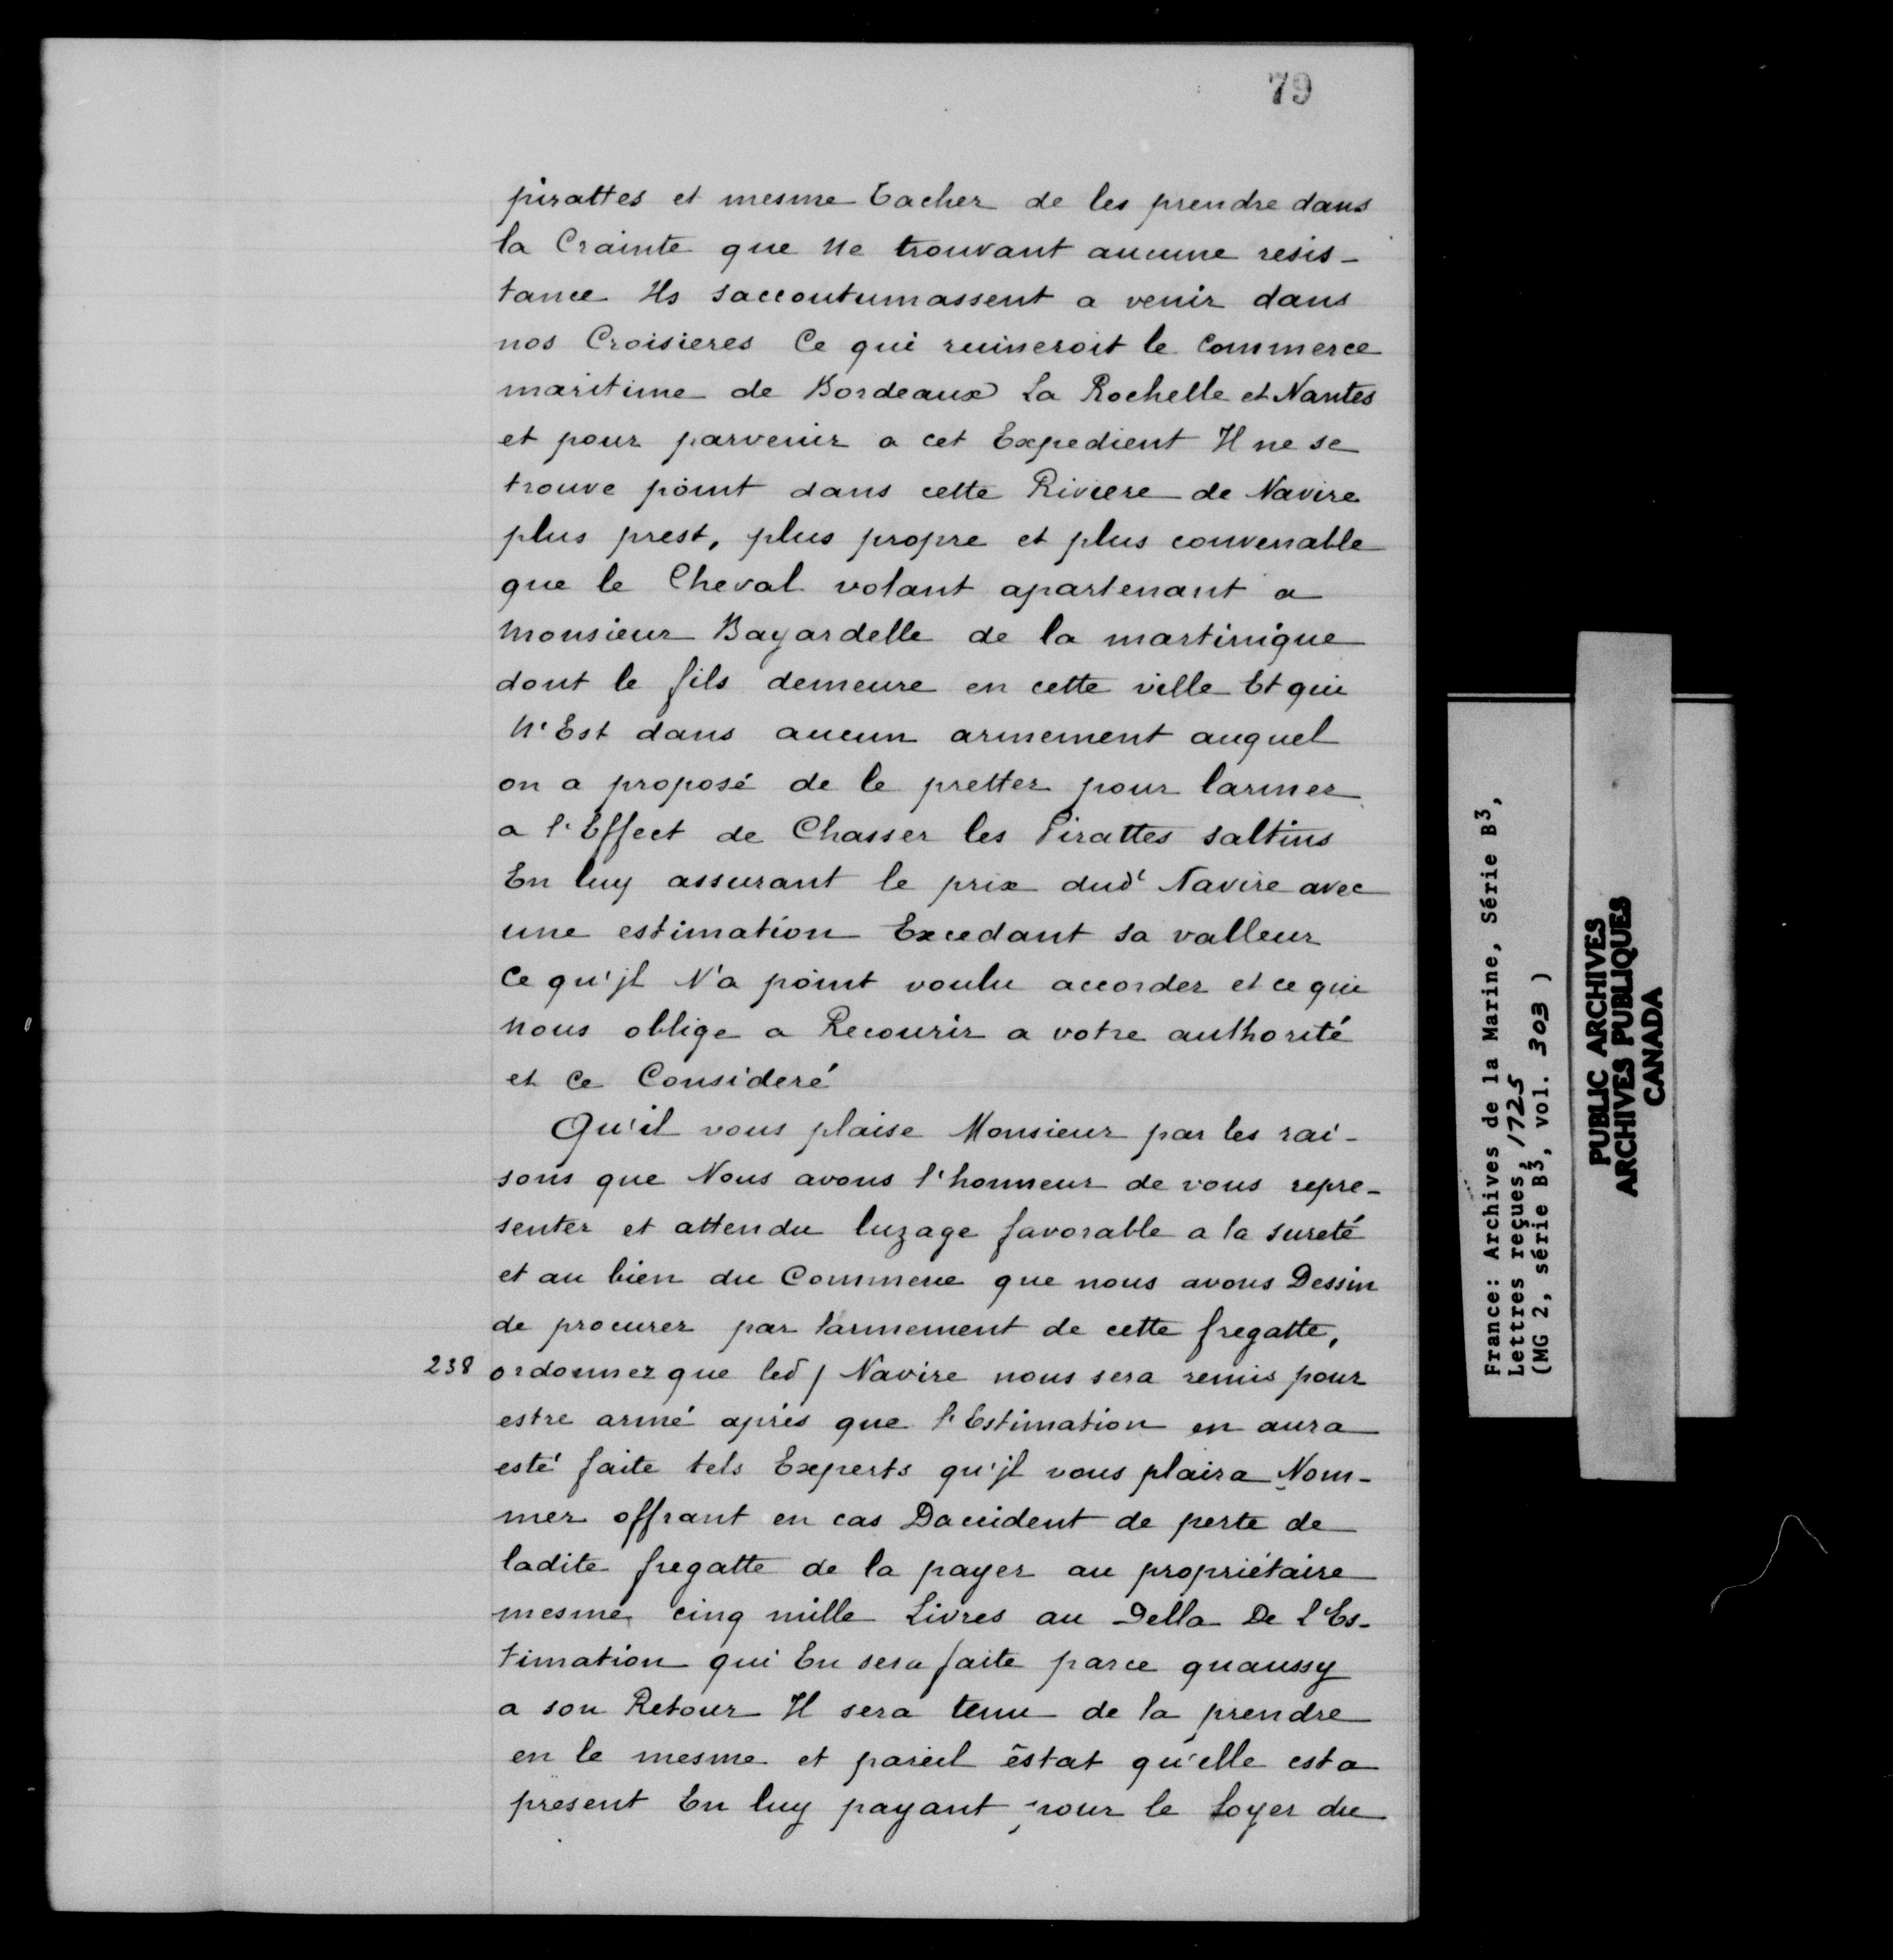 79
pirattes et mesme tacher de les prendre dans
la Crainte que Ne trouvant aucune resis-
tance Ils saccoutumassent a venir dans
nos Croisieres Ce qui ruineroit le Commerce
maritime de Bordeaux La Rochelle et Nantes
et pour parvenir a cet Expedient Il ne se
trouve point dans cette Riviere de Navire
plus prest, plus propre et plus convenable
que le Cheval volant apartenant a
Monsieur Bayardelle de la martinique
dont le fils demeure en cette ville Et qui
N'Est dans aucun armement auquel
on a proposé de le pretter pour larmer
a l'Effect de Chasser les Pirattes saltins
En luy assurant le prix dud' Navire avec
une estimation Excedant sa valleur
Ce qu'jl N'a point voulu accorder et ce qui
nous oblige a Recourir a votre authorité
et Ce Consideré
Qu'il vous plaise Monsieur par les rai-
sons que Nous avons l'honneur de vous repre-
senter et attendu luzage favorable a la sureté
et au bien du Commerce que nous avons Dessin
de procurer par larmement de cette fregatte,
238 ordonner que led / Navire nous sera remis pour
estre armé aprés que l'Estimation en aura
esté faite tels Experts qu'jl vous plaira Nom-
mer offrant en cas Daccident de perte de
ladite fregatte de la payer au propriétaire
mesme cinq mille Livres au Della De l'Es-
timation qui En sera faite parce quaussy
a son Retour Il sera tenu de la prendre
en le mesme et pareil êstat qu'elle est a
present En luy payant pour le loyer du
France: Archives de la Marine, Série B3,
Lettres reçues, 1725
(MG 2, série B3, vol. 303 )
PUBLIC ARCHIVES
ARCHIVES PUBLIQUES
CANADA